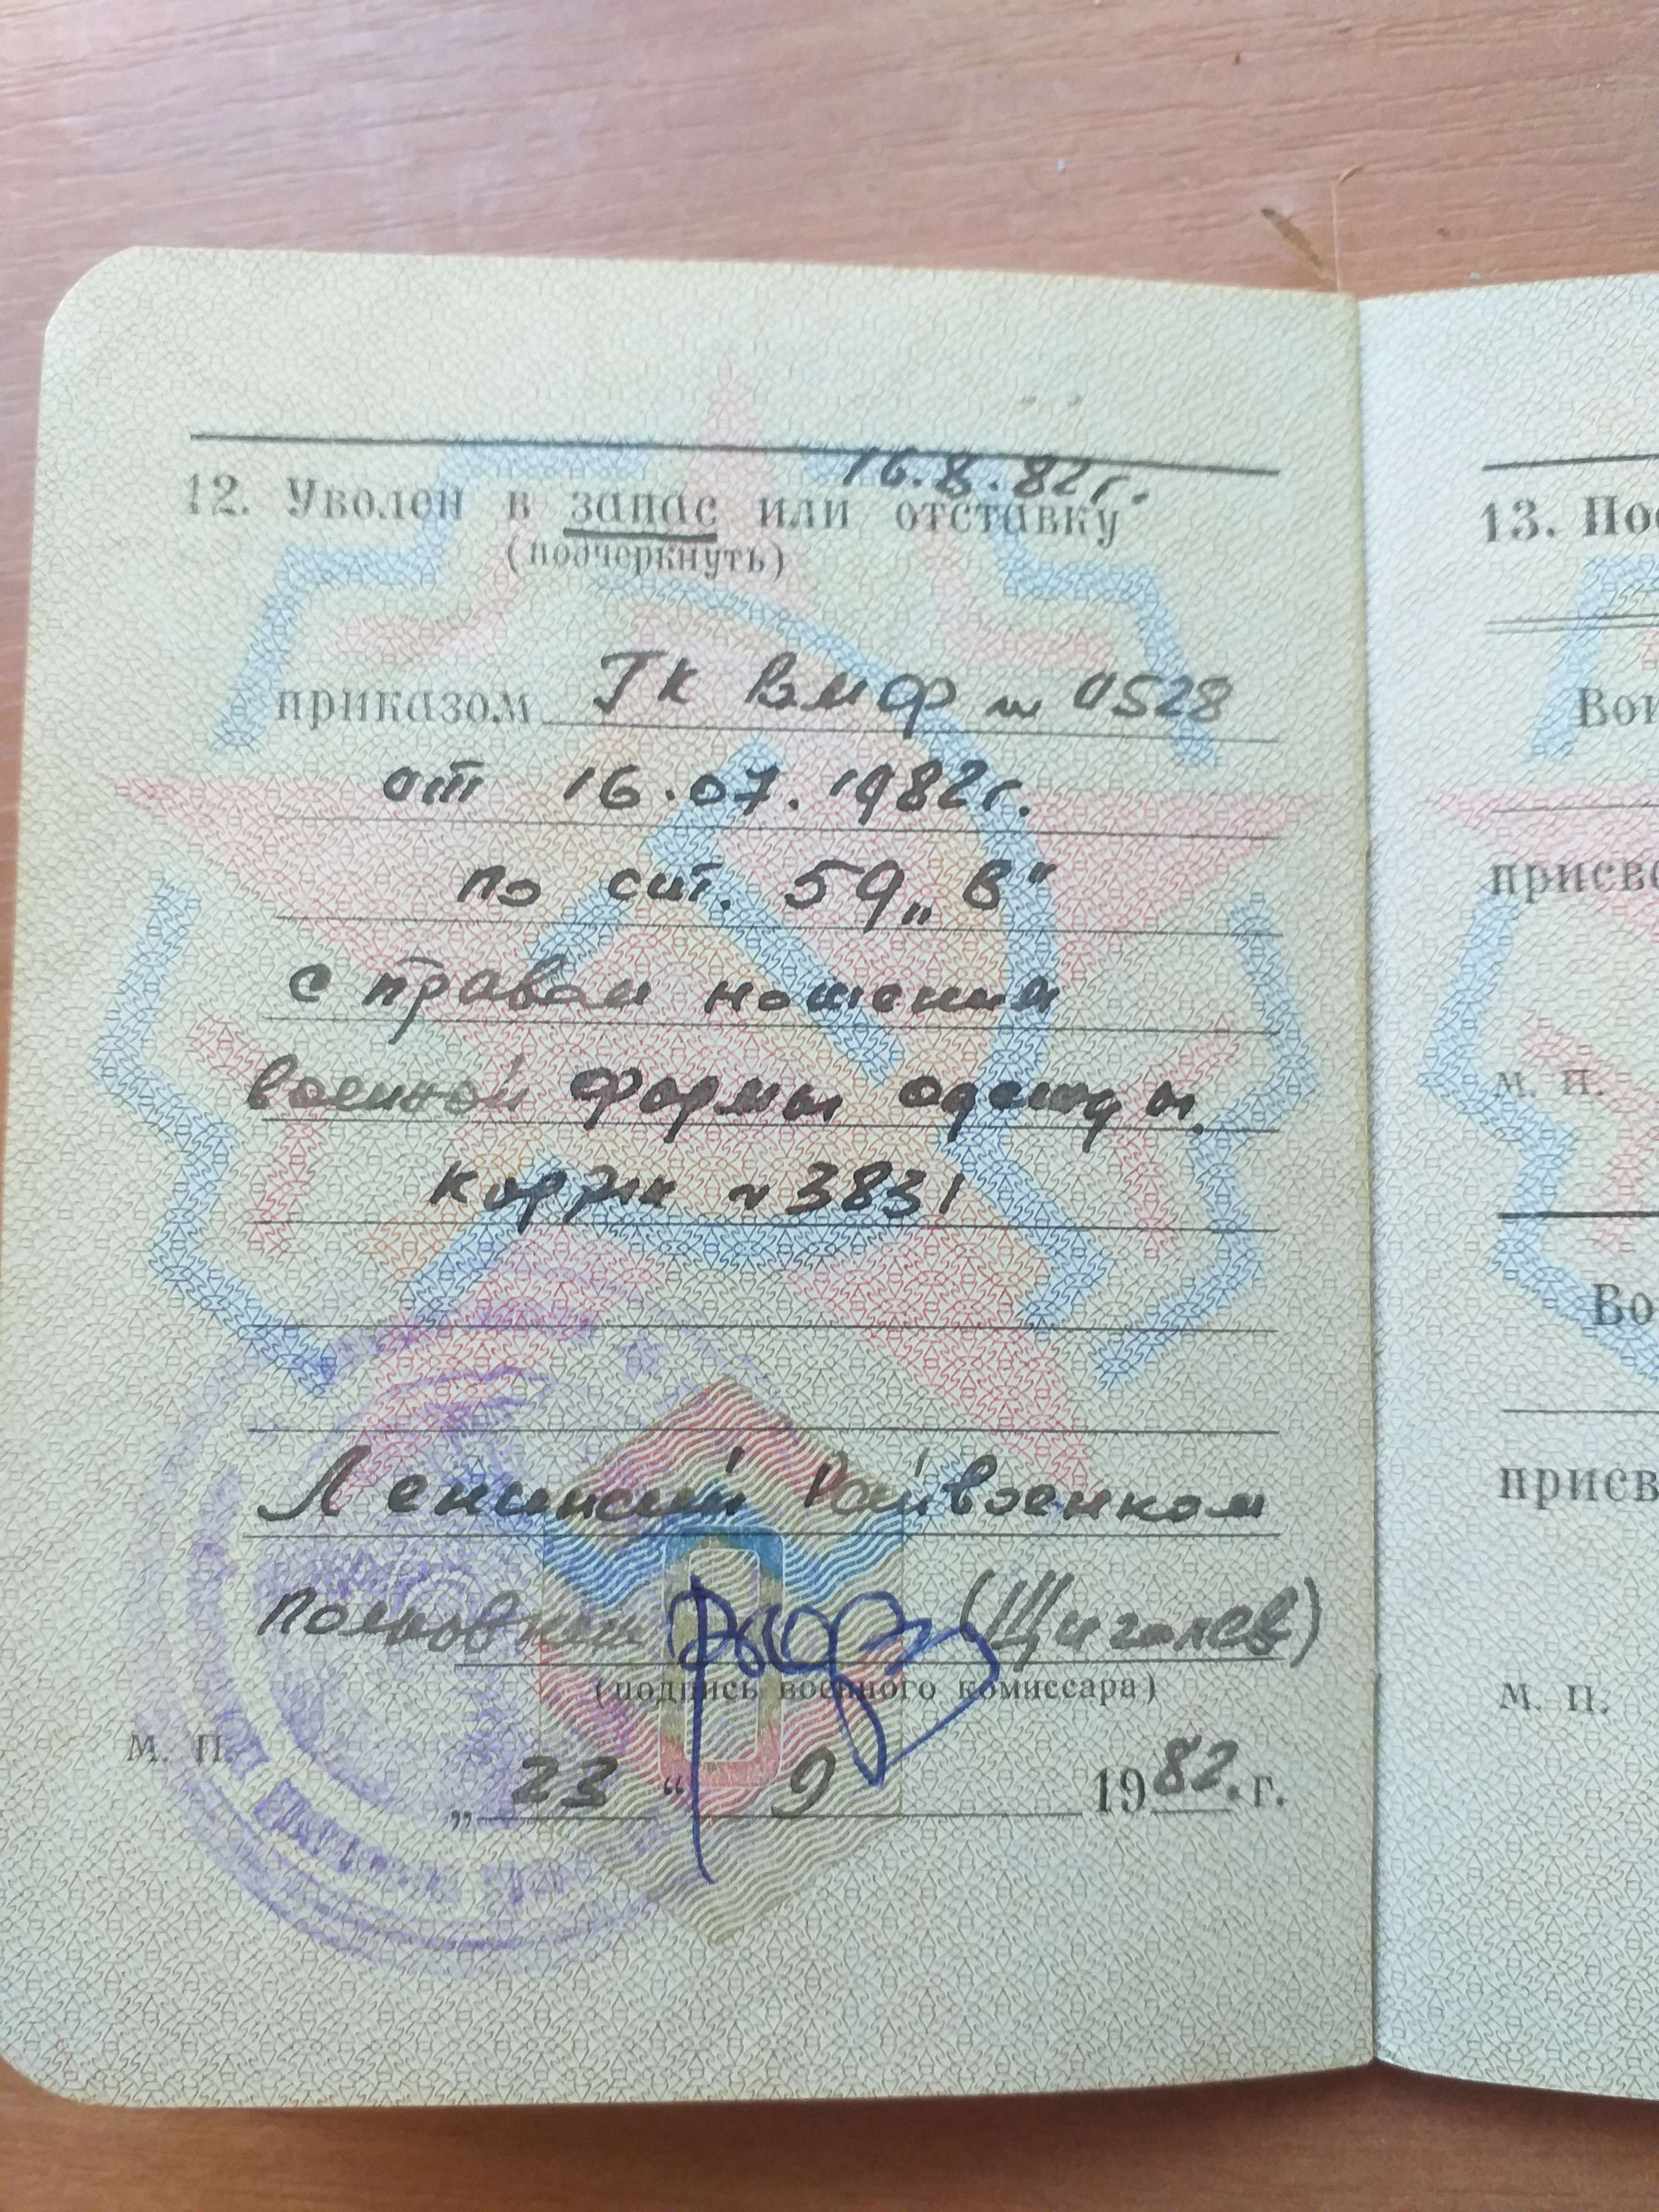 16.8.82г.
12. Уволен в запас или отставку
(подчеркнуть)
приказом ГК ВМФ № 0528
от 16.07.1982г.
по ст. 59 „В“
с правом ношения
военной формы одежды.
№ 3831
Ленинский Райвоенком
полковник (Щиголев)
(подпись военного комиссара)
М. П.
„ 23 “ 9 1982. г.
13. Пос
Вои
присво
м. п.
Во
присв
м. п.